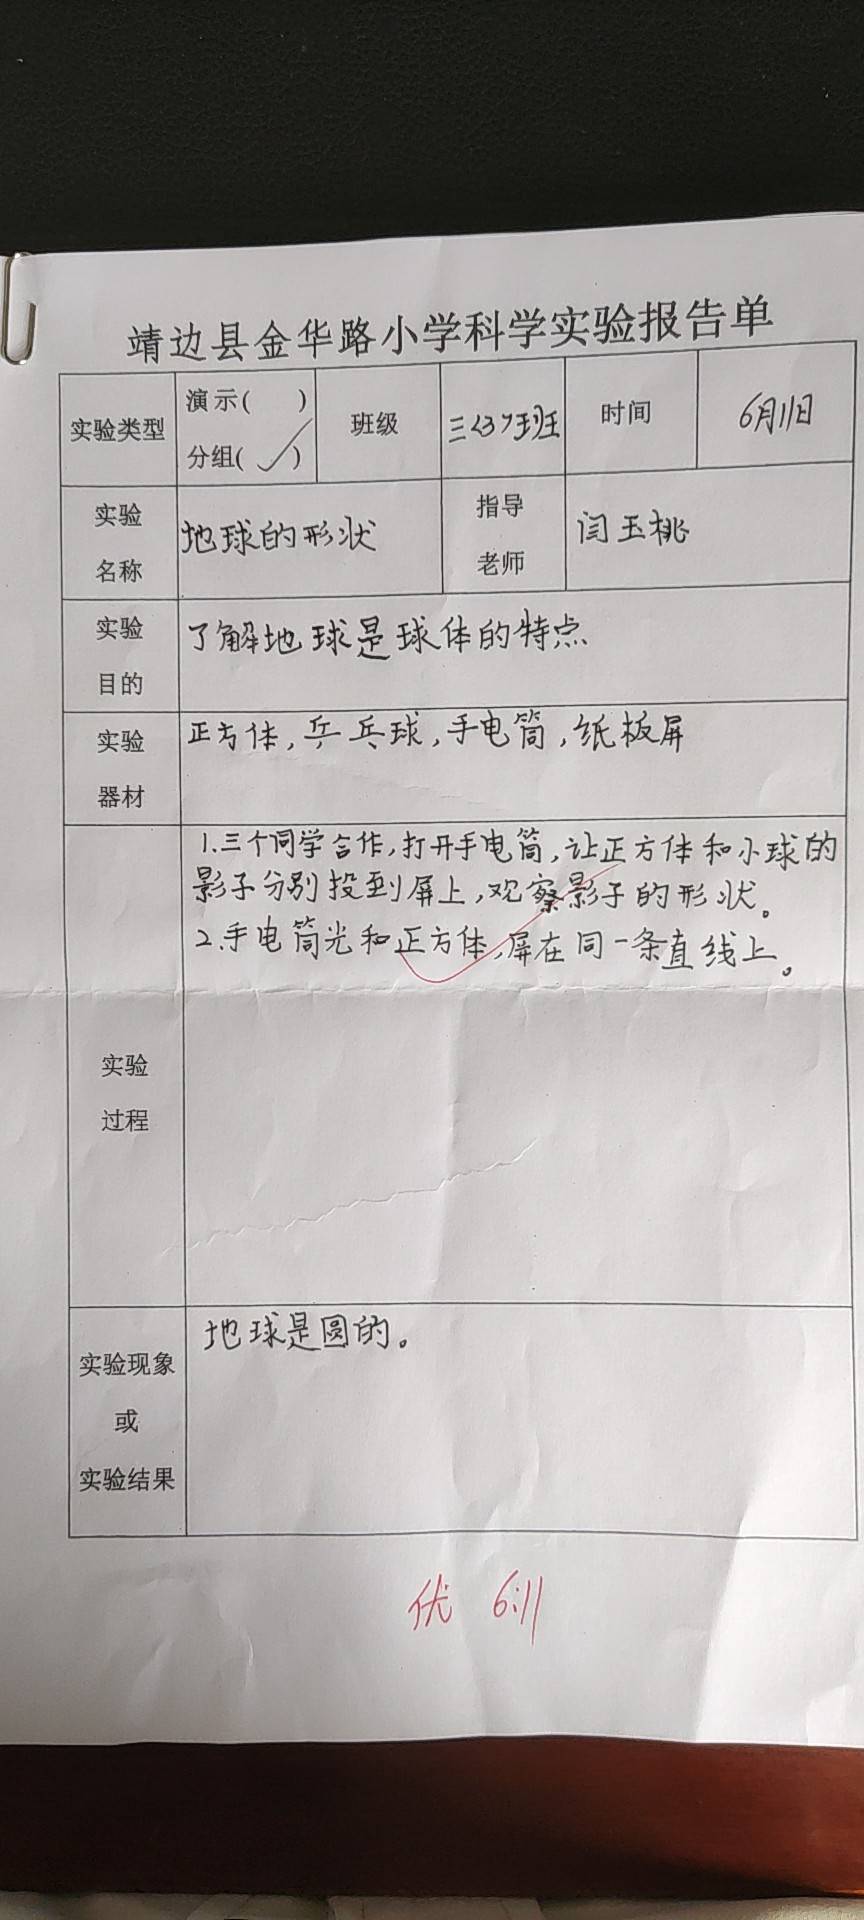 靖边县金华路小学科学实验报告单
实验类型
演示( )
分组( ✓ )
班级
三<3>班
时间
6月11日
实验
名称
地球的形状
指导
老师
闫玉桃
实验
目的
了解地球是球体的特点
实验
器材
正方体,乒乓球,手电筒,纸板屏
实验
过程
1.三个同学合作,打开手电筒,让正方体和小球的
影子分别投到屏上,观察影子的形状。
2.手电筒光和正方体,屏在同一条直线上。
实验现象
或
实验结果
地球是圆的。
优 6.11